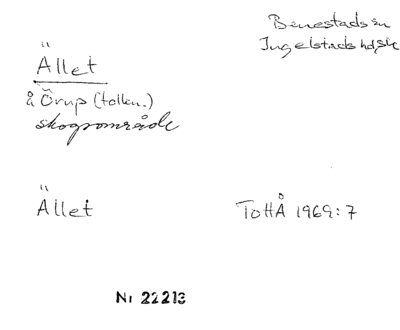 Benestads sn
Ingelstads hd, Sk
Ället
å Örup (tollen.)
skogsområde
Ället
ToHÅ 1969:7
Nr 22213